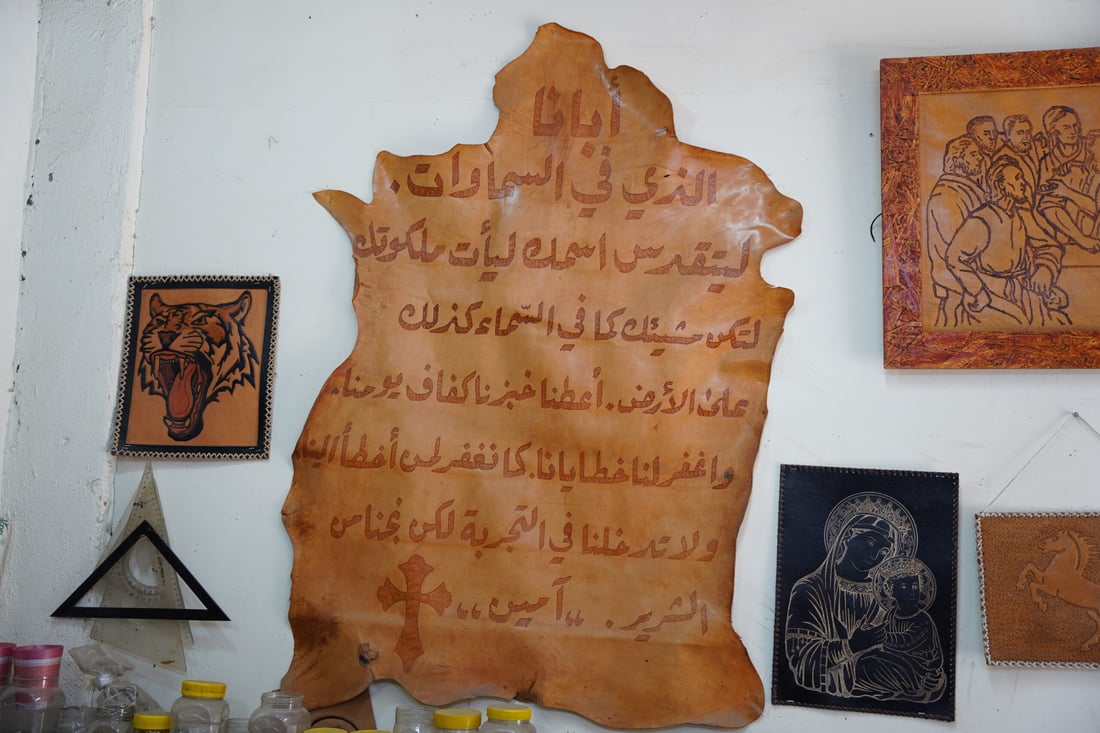 أبانا
الذي في السماوات.
ليتقدس اسمك ليأت ملكوتك
لتكن مشيئك كما في السّماء كذلك
على الأرض. أعطنا خبزنا كفاف يومنا.
واغفر لنا خطايانا. كما نغفر لمن أخطأ الينا
ولا تدخلنا في التجربة لكن نجنا من
الشرير. ,,آمين,,